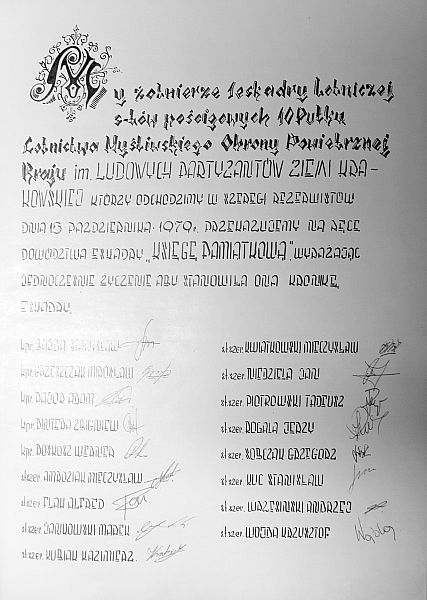 My żołnierze 1eskadry Lotniczej
s-łów pościgowych 10Pułku
Lotnictwa Myśliwskiego Obrony Powietrznej
Kraju im. LUDOWYCH PARTYZANTÓW ZIEMI KRA-
KOWSKIEJ KTÓRZY ODCHODZIMY W SZEREGI REZERWISTÓW
DNIA 15 PAŹDZIERNIKA 1979r. PRZEKAZUJEMY NA RĘCE
DOWÓDZTWA ESKADRY „KSIĘGĘ PAMIĄTKOWĄ”, WYRAŻAJĄC
JEDNOCZEŚNIE ŻYCZENIE ABY STANOWIŁA ONA KRONIKĘ
ESKADRY.
kpr. STANISŁAW
kpr. MIROSŁAW
kpr. PAJOR ADAM
kpr. ZBIGNIEW
kpr. WERNER
st.szer. AMBROZIAK MIECZYSŁAW
st.szer. FLAK ALFRED
st.szer. JANKOWSKI MAREK
st.szer. KUBIAK KAZIMIERZ.
st.szer. KWIATKOWSKI MIECZYSŁAW
st.szer. NIEDZIELA JAN
st.szer. PIOTROWSKI TADEUSZ
st.szer. ROGALA JERZY
st.szer. SOBCZAK GRZEGORZ
st.szer. KUC STANISŁAW
st.szer. ANDRZEJ
st.szer. WOJDA KRZYSZTOF